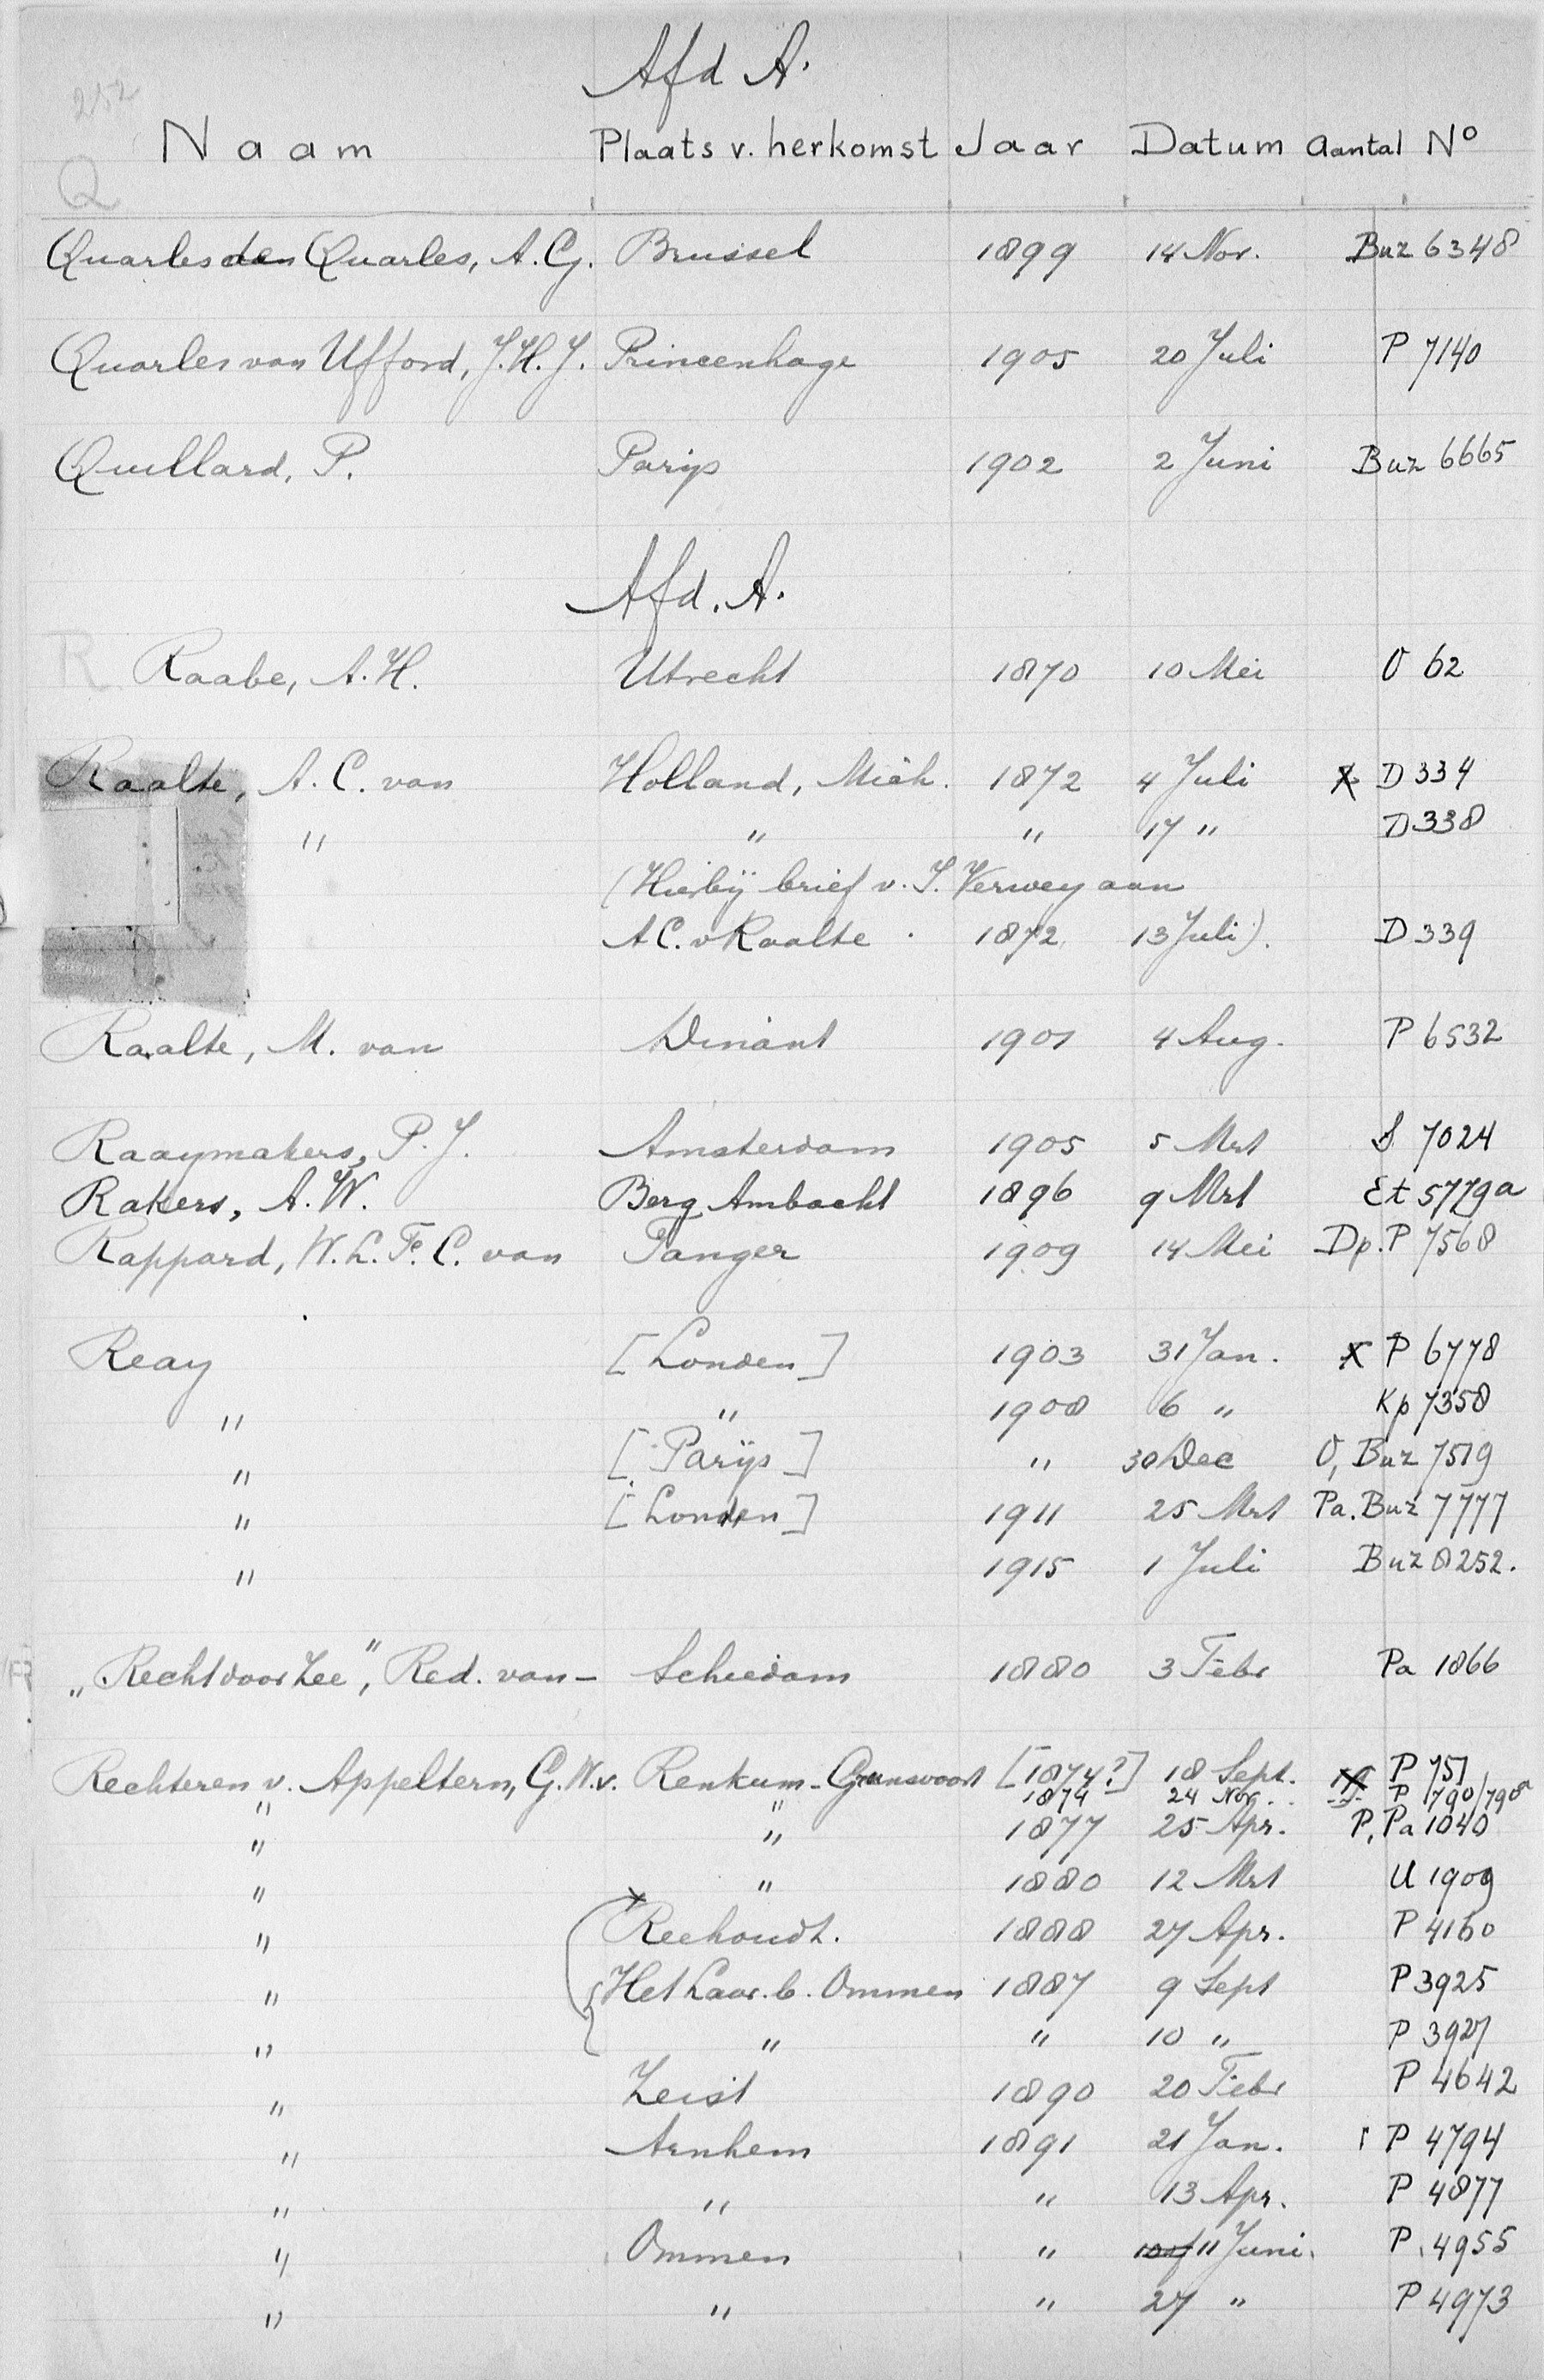 Afd A.
252
Naam Plaats v. herkomst Jaar Datum Aantal Nº
Q
Quarles den Quarles, A.G. Brussel 1899 14 Nov. Buz 6348
Quarles van Ufford, J.H.J. Princenhage 1905 20 Juli P 7140
Quillard, P. Parijs 1902 2 Juni Buz 6665
Afd. A.
R
Raabe, A.H. Utrecht 1870 10 Mei O 62
Raalte, A.C. van Holland, Mich. 1872 4 Juli X D 334
" " " 17 " D 338
(Hierbij brief v. J. Verwey aan
A C. v Raalte 1872 13 Juli). D 339
Raalte, M. van Dinant 1901 4 Aug. P 6532
Raaymakers, P.J. Amsterdam 1905 5 Mrt S 7024
Rakers, A.W. Berg Ambacht 1896 9 Mrt Et 5779a
Rappard, W.L.F.C. van Tanger 1909 14 Mei Dp. P 7568
Reay [Londen] 1903 31 Jan. X P 6778
" " 1908 6 " Kp 7358
" [Parijs] " 30 Dec O, Buz 7519
" [Londen] 1911 25 Mrt Pa. Buz 7777
" 1915 1 Juli Buz 8252.
„Recht door Zee", Red. van - Schiedam 1880 3 Febr Pa 1866
Rechteren v. Appeltern, G.W.v. Renkum-Grunsvoort [1874?] 18 Sept. P 751
" " 1874 24 Nov. P 790/790a
" " 1877 25 Apr. P, Pa 1040
" " 1880 12 Mrt U 1909
" Rechoudt. 1888 27 Apr. P 4160
" Het Laar. b. Ommen 1887 9 Sept P 3925
" " " 10 " P 3927
" Zeist 1890 20 Febr P 4642
" Arnhem 1891 21 Jan. P 4794
" " " 13 Apr. P 4877
" Ommen " 10 of 11 Juni. P. 4955
" " " 27 " P 4973